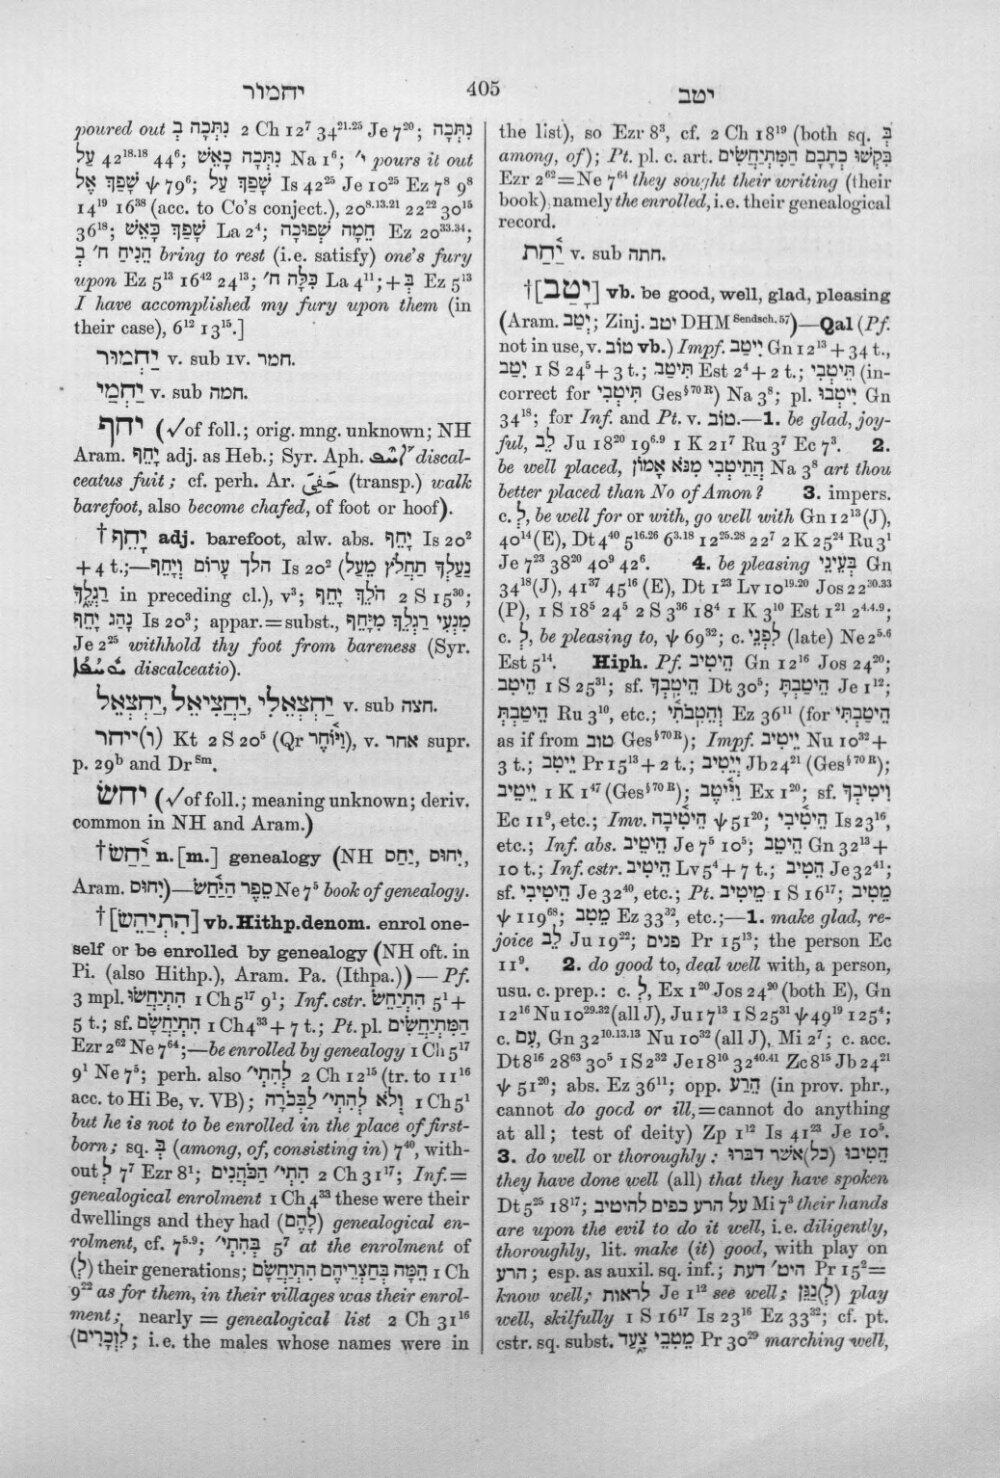 יחמור
405
יטב
poured out נִתְּכָה בְּ 2 Ch 12⁷ 34²¹·²⁵ Je 7²⁰; נִתְּכָה
עַל 42¹⁸·¹⁸ 44⁶; נִתְּכָה כָאֵשׁ Na 1⁶; י׳ pours it out
שָׁפַךְ אֶל ψ 79⁶; שָׁפַךְ עַל Is 42²⁵ Je 10²⁵ Ez 7⁸ 9⁸
14¹⁹ 16³⁸ (acc. to Co's conject.), 20⁸·¹³·²¹ 22²² 30¹⁵
36¹⁸; שָׁפַךְ כָּאֵשׁ La 2⁴; חֵמָה שְׁפוּכָה Ez 20³³·³⁴;
הֵנִיחַ ח׳ בְּ bring to rest (i.e. satisfy) one's fury
upon Ez 5¹³ 16⁴² 24¹³; כִּלָּה ח׳ La 4¹¹; + בְּ Ez 5¹³
I have accomplished my fury upon them (in
their case), 6¹² 13¹⁵.]
יַחְמוּר v. sub IV. חמר.
יַחְמַי v. sub חמה.
יחף (√of foll.; orig. mng. unknown; NH
Aram. יָחֵף adj. as Heb.; Syr. Aph. discal-
ceatus fuit; cf. perh. Ar. حَفِىَ (transp.) walk
barefoot, also become chafed, of foot or hoof).
†יָחֵף adj. barefoot, alw. abs. יָחֵף Is 20²
+4 t.;—הלך עָרוֹם וְיָחֵף Is 20² (נַעַלְךָ תַחֲלֹץ מֵעַל
רַגְלֶךָ in preceding cl.), v³; הֹלֵךְ יָחֵף 2 S 15³⁰;
נָהַג יָחֵף Is 20³; appar.=subst., מִנְעִי רַגְלֵךְ מִיָּחֵף
Je 2²⁵ withhold thy foot from bareness (Syr.
discalceatio).
יַחְצְאֵל, יַחֲצִיאֵל, יַחְצְאֵלִי v. sub חצה.
(ו)ייחר Kt 2 S 20⁵ (Qr וַיּוֹחֶר), v. אחר supr.
p. 29ᵇ and Dr ˢᵐ.
יחשׂ (√of foll.; meaning unknown; deriv.
common in NH and Aram.)
†יַחַשׂ n.[m.] genealogy (NH יִחוּס, יַחַס,
Aram. יִחוּס)—סֵפֶר הַיַּחַשׂ Ne 7⁵ book of genealogy.
†[הִתְיַחֵשׂ] vb. Hithp. denom. enrol one-
self or be enrolled by genealogy (NH oft. in
Pi. (also Hithp.), Aram. Pa. (Ithpa.))—Pf.
3 mpl. הִתְיַחֲשׂוּ 1 Ch 5¹⁷ 9¹; Inf. cstr. הִתְיַחֵשׂ 5¹+
5 t.; sf. הִתְיַחְשָׂם 1 Ch 4³³ + 7 t.; Pt. pl. הַמִּתְיַחֲשִׂים
Ezr 2⁶² Ne 7⁶⁴;—be enrolled by genealogy 1 Ch 5¹⁷
9¹ Ne 7⁵; perh. also לְהִתְי׳ 2 Ch 12¹⁵ (tr. to 11¹⁶
acc. to Hi Be, v. VB); וְלֹא לְהִתְי׳ לַבְּכֹרָה 1 Ch 5¹
but he is not to be enrolled in the place of first-
born; sq. בְּ (among, of, consisting in) 7⁴⁰, with-
out לְ 7⁷ Ezr 8¹; הִתְי׳ הַכֹּהֲנִים 2 Ch 31¹⁷; Inf.=
genealogical enrolment 1 Ch 4³³ these were their
dwellings and they had (לָהֶם) genealogical en-
rolment, cf. 7⁵·⁹; בְּהִתְי׳ 5⁷ at the enrolment of
(לְ) their generations; הֵמָּה בְחַצְרֵיהֶם הִתְיַחְשָׂם 1 Ch
9²² as for them, in their villages was their enrol-
ment; nearly = genealogical list 2 Ch 31¹⁶
(לִזְכָרִים; i.e. the males whose names were in
the list), so Ezr 8³, cf. 2 Ch 18¹⁹ (both sq. בְּ
among, of); Pt. pl. c. art. בִּקְשׁוּ כְתָבָם הַמִּתְיַחֲשִׂים
Ezr 2⁶²=Ne 7⁶⁴ they sought their writing (their
book), namely the enrolled, i.e. their genealogical
record.
יַחַת v. sub חתה.
†[יָטַב] vb. be good, well, glad, pleasing
(Aram. יְטֵב; Zinj. יטב DHM Sendsch. 57)—Qal (Pf.
not in use, v. טוֹב vb.) Impf. יִיטַב Gn 12¹³ + 34 t.,
יִטַב 1 S 24⁵ + 3 t.; תִּיטַב Est 2⁴ + 2 t.; תֵּיטְבִי (in-
correct for תִּיטְבִי Ges§ 70 R) Na 3⁸; pl. יִיטְבוּ Gn
34¹⁸; for Inf. and Pt. v. טוֹב.—1. be glad, joy-
ful, לֵב Ju 18²⁰ 19⁶·⁹ 1 K 21⁷ Ru 3⁷ Ec 7³. 2.
be well placed, הֲתֵיטְבִי מִנֹּא אָמוֹן Na 3⁸ art thou
better placed than No of Amon? 3. impers.
c. לְ, be well for or with, go well with Gn 12¹³ (J),
40¹⁴ (E), Dt 4⁴⁰ 5¹⁶·²⁶ 6³·¹⁸ 12²⁵·²⁸ 22⁷ 2 K 25²⁴ Ru 3¹
Je 7²³ 38²⁰ 40⁹ 42⁶. 4. be pleasing בְּעֵינֵי Gn
34¹⁸ (J), 41³⁷ 45¹⁶ (E), Dt 1²³ Lv 10¹⁹·²⁰ Jos 22³⁰·³³
(P), 1 S 18⁵ 24⁵ 2 S 3³⁶ 18⁴ 1 K 3¹⁰ Est 1²¹ 2⁴·⁴·⁹;
c. לְ, be pleasing to, ψ 69³²; c. לִפְנֵי (late) Ne 2⁵·⁶
Est 5¹⁴. Hiph. Pf. הֵיטִיב Gn 12¹⁶ Jos 24²⁰;
הֵיטִב 1 S 25³¹; sf. הֵיטִבְךָ Dt 30⁵; הֵיטַבְתָּ Je 1¹²;
הֵיטַבְתְּ Ru 3¹⁰, etc.; וְהֵטִבֹתִי Ez 36¹¹ (for הֵיטַבְתִּי
as if from טוב Ges§ 70 R); Impf. יֵיטִיב Nu 10³² +
3 t.; יֵיטִב Pr 15¹³ + 2 t.; יְיֵטִיב Jb 24²¹ (Ges§ 70 R);
יֵיטֵיב 1 K 1⁴⁷ (Ges§ 70 R); וַיֵּיטֶב Ex 1²⁰; sf. וִיטִיבְךָ
Ec 11⁹, etc.; Imv. הֵיטִיבָה ψ 51²⁰; הֵיטִיבִי Is 23¹⁶,
etc.; Inf. abs. הֵיטֵיב Je 7⁵ 10⁵; הֵיטֵב Gn 32¹³ +
10 t.; Inf. cstr. הֵיטִיב Lv 5⁴ + 7 t.; הֵטִיב Je 32⁴¹;
sf. הֵיטִיבִי Je 32⁴⁰, etc.; Pt. מֵיטִיב 1 S 16¹⁷; מֵטִיב
ψ 119⁶⁸; מֵטִב Ez 33³², etc.;—1. make glad, re-
joice לֵב Ju 19²²; פנים Pr 15¹³; the person Ec
11⁹. 2. do good to, deal well with, a person,
usu. c. prep.: c. לְ, Ex 1²⁰ Jos 24²⁰ (both E), Gn
12¹⁶ Nu 10²⁹·³² (all J), Ju 17¹³ 1 S 25³¹ ψ 49¹⁹ 125⁴;
c. עִם, Gn 32¹⁰·¹³·¹³ Nu 10³² (all J), Mi 2⁷; c. acc.
Dt 8¹⁶ 28⁶³ 30⁵ 1 S 2³² Je 18¹⁰ 32⁴⁰·⁴¹ Zc 8¹⁵ Jb 24²¹
ψ 51²⁰; abs. Ez 36¹¹; opp. הֵרַע (in prov. phr.,
cannot do good or ill,=cannot do anything
at all; test of deity) Zp 1¹² Is 41²³ Je 10⁵.
3. do well or thoroughly: הֵטִיבוּ (כל)אשׁר דברו
they have done well (all) that they have spoken
Dt 5²⁵ 18¹⁷; על הרע כפים להיטיב Mi 7³ their hands
are upon the evil to do it well, i.e. diligently,
thoroughly, lit. make (it) good, with play on
הרע; esp. as auxil. sq. inf.; היט׳ דעת Pr 15²=
know well; לראות Je 1¹² see well; (לְ)נַגֵּן play
well, skilfully 1 S 16¹⁷ Is 23¹⁶ Ez 33³²; cf. pt.
cstr. sq. subst. מֵטִבֵי צָעַד Pr 30²⁹ marching well,